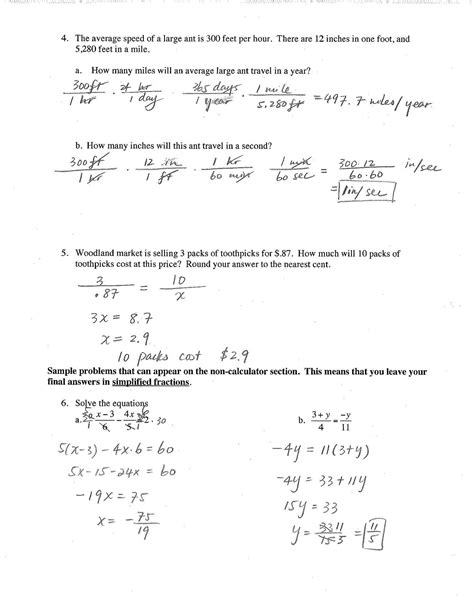 4. The average speed of a large ant is 300 feet per hour. There are 12 inches in one foot, and
5,280 feet in a mile.
a. How many miles will an average large ant travel in a year?
300ft/1 hr · 24 hr/1 day · 365 days/1 year · 1 mile/5,280 ft = 497.7 miles/year
b. How many inches will this ant travel in a second?
300ft/1 hr · 12 in/1 ft · 1 hr/60 min · 1 min/60 sec = 300·12/60·60 in/sec
= 1in/sec
5. Woodland market is selling 3 packs of toothpicks for $.87. How much will 10 packs of
toothpicks cost at this price? Round your answer to the nearest cent.
3/.87 = 10/x
3x = 8.7
x = 2.9
10 packs cost $2.9
Sample problems that can appear on the non-calculator section. This means that you leave your
final answers in simplified fractions.
6. Solve the equations
a. 30/1 x-3/6 - 4x/5·1 = 2·30
5(x-3) - 4x·6 = 60
5x-15-24x = 60
-19x = 75
x = -75/19
b. 3+y/4 = -y/11
-4y = 11(3+y)
-4y = 33+11y
15y = 33
y = 33 11/15 5 = 11/5